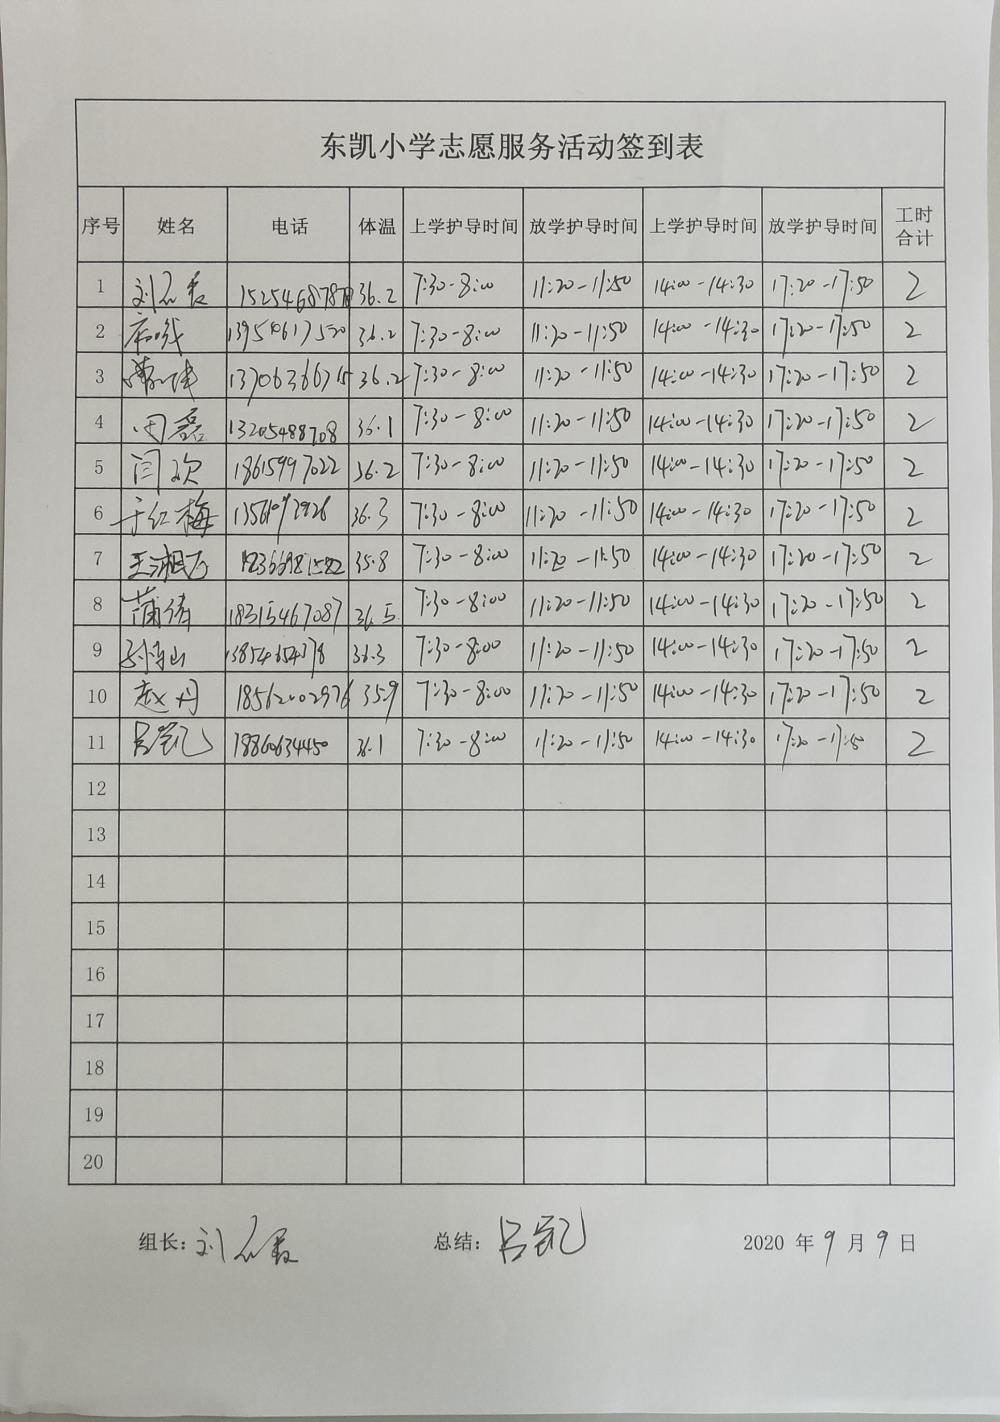 东凯小学志愿服务活动签到表
序号 姓名 电话 体温 上学护导时间 放学护导时间 上学护导时间 放学护导时间 工时合计
1 36.2 7:30-8:00 11:20-11:50 14:00-14:30 17:20-17:50 2
2 36.2 7:30-8:00 11:20-11:50 14:00-14:30 17:20-17:50 2
3 36.2 7:30-8:00 11:20-11:50 14:00-14:30 17:20-17:50 2
4 周磊 13205488708 36.1 7:30-8:00 11:20-11:50 14:00-14:30 17:20-17:50 2
5 闫欢 18615997022 36.2 7:30-8:00 11:20-11:50 14:00-14:30 17:20-17:50 2
6 于红梅 36.3 7:30-8:00 11:20-11:50 14:00-14:30 17:20-17:50 2
7 35.8 7:30-8:00 11:20-11:50 14:00-14:30 17:20-17:50 2
8 蒲倩 18315467087 36.5 7:30-8:00 11:20-11:50 14:00-14:30 17:20-17:50 2
9 36.3 7:30-8:00 11:20-11:50 14:00-14:30 17:20-17:50 2
10 赵丹 18562002976 35.9 7:30-8:00 11:20-11:50 14:00-14:30 17:20-17:50 2
11 18860634450 36.1 7:30-8:00 11:20-11:50 14:00-14:30 17:20-17:50 2
12
13
14
15
16
17
18
19
20
组长: 总结: 2020 年 9 月 9 日